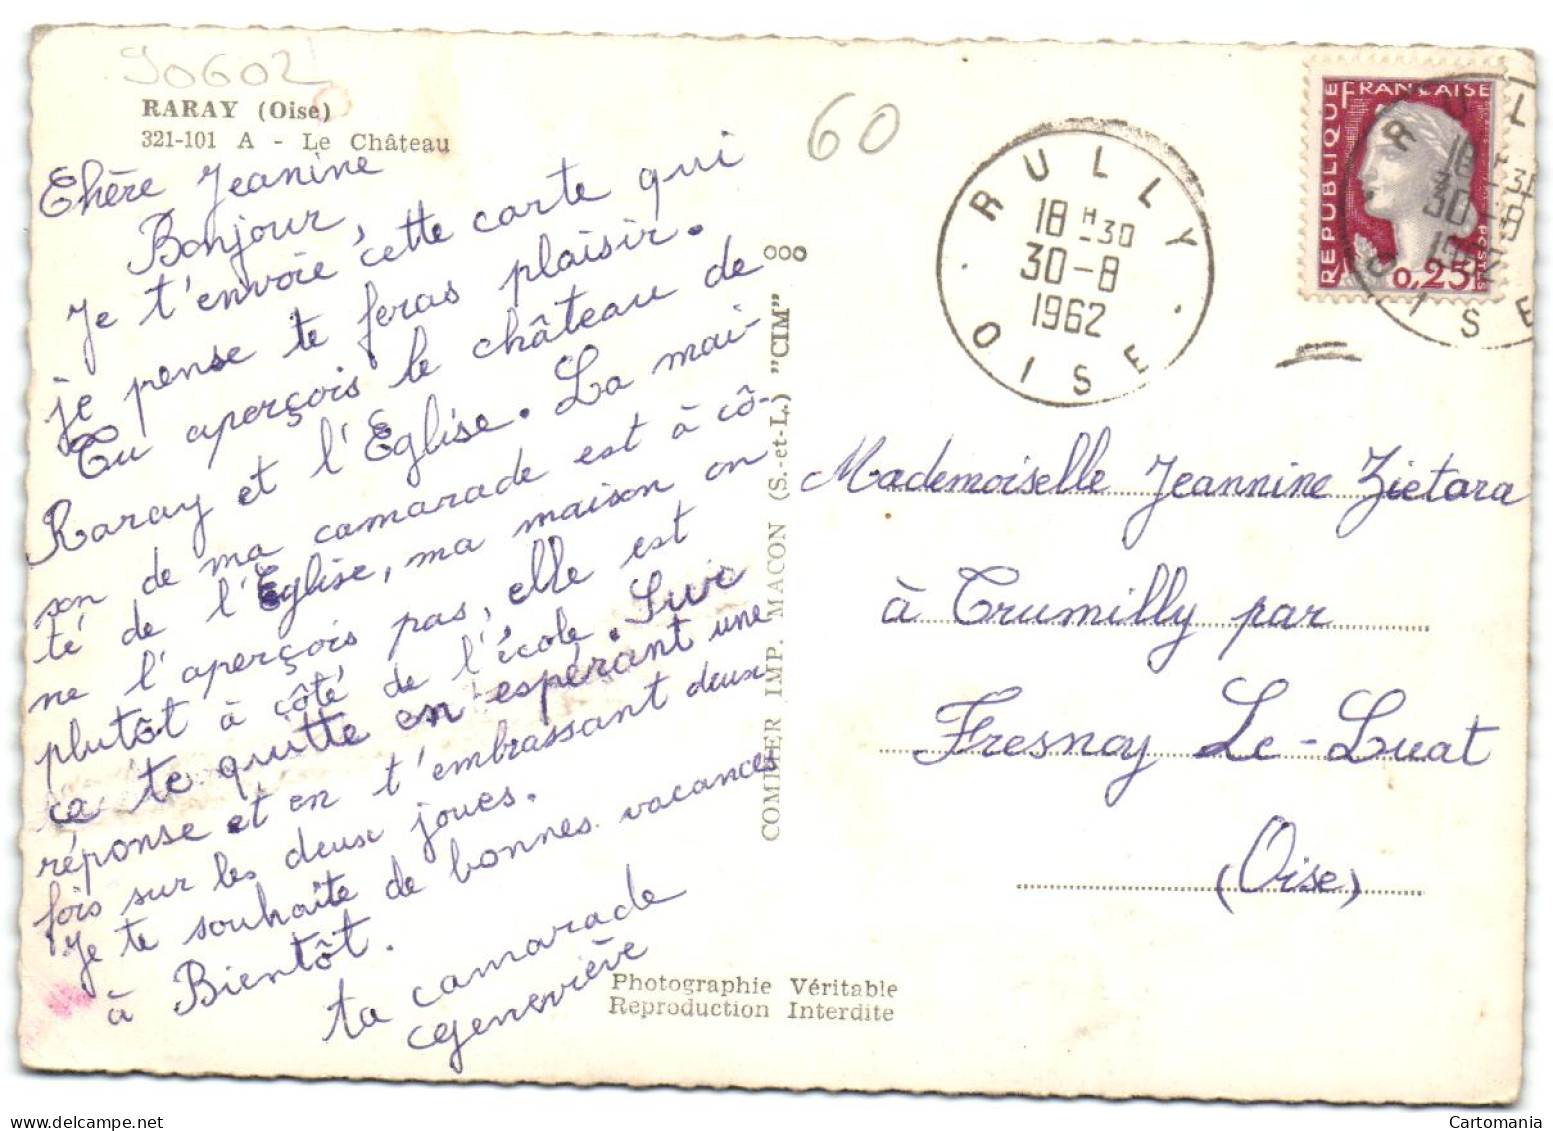 90602
RARAY (Oise)
321-101 A - Le Château
Chère Jeanine
Bonjour,
Je t'envoie cette carte qui
je pense te feras plaisir.
Tu aperçois le château de
Raray et l'Eglise. La mai-
son de ma camarade est à cô-
té de l'Eglise, ma maison on
ne l'aperçois pas, elle est
plutôt à côté de l'école. Sur
ca te quitte en espérant une
réponse et en t'embrassant deux
fois sur les deux joues.
Je te souhaite de bonnes vacances
à Bientôt.
ta camarade
Geneviève
COMBIER IMP. MACON (S.-et-L.) "CIM"
Photographie Véritable
Reproduction Interdite
60
RULLY
18H-30
30-8
1962
OISE
REPUBLIQUE FRANÇAISE
POSTES
0,25
RULLY
18H-30
30-8
1962
OISE
Mademoiselle Jeannine Zietara
à Trumilly par
Fresnoy Le-Luat
(Oise)
Cartomania